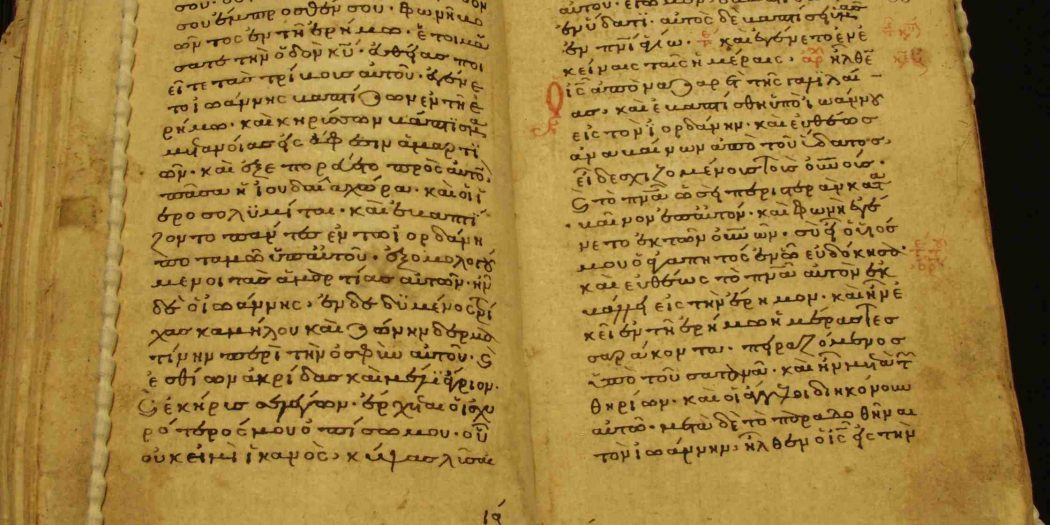 σου ἔμπροσθέν σου · φωνὴ βο
ῶντος ἐν τῇ ἐρήμω · ἑτοιμά
σατε τὴν ὁδὸν κ̅υ̅ · εὐθείας ποι
εῖτε τὰς τρίβους αὐτοῦ · ἐγένε
το ἰωάννης βαπτίζων ἐν τῆ ἐ
ρήμω · καὶ κηρύσσων βάπτισμα
μετανοίας εἰς ἄφεσιν ἁμαρτι
ῶν · καὶ ἐξεπορεύετο πρὸς αὐτὸν
πᾶσα ἡ ἰουδαία χώρα · καὶ οἱ ἱ
εροσολυμίται · καὶ ἐβαπτί
ζοντο πάντες ἐν τῶ ἰορδάνη
ποταμῶ ὑπ' αὐτοῦ · ἐξομολογού
μενοι τὰς ἁμαρτίας αὐτῶν · ἦν
δὲ ὁ ἰωάννης · ἐνδεδυμένος τρί
χας καμήλου καὶ ζώνην δερμα
τίνην περὶ τὴν ὀσφὺν αὐτοῦ · ϗ
ἐσθίων ἀκρίδας καὶ μέλι ἄγριον ·
ϗ ἐκήρυσσε λέγων · ἔρχεται ὁ ἰσχυ
ρότερός μου ὀπίσω μου · οὗ
οὐκ εἰμὶ ἱκανὸς · κύψας λῦσαι
ἐν ὕδατι · αὐτὸς δὲ βαπτίσει ὑμᾶς
ἐν π̅ν̅ι̅ ἁγίω · καὶ ἐγένετο ἐν ἐ
κείναις ταῖς ἡμέραις · ἦλθεν
ὁ ι̅ς̅ ἀπὸ ναζαρὲτ τῆς γαλιλαί
ας · καὶ ἐβαπτίσθη ὑπὸ ἰωάννου
εἰς τὸν ἰορδάνην · καὶ εὐθέως
ἀναβαίνων ἀπὸ τοῦ ὕδατος ·
εἶδε σχιζομένους τοὺς ο̅υ̅ν̅ο̅ύ̅ς̅ ·
ϗ τὸ π̅ν̅α̅ ὡσεὶ περιστερὰν κατα
βαῖνον ἐπ' αὐτόν · καὶ φωνὴ ἐγέ
νετο ἐκ τῶν ο̅υ̅ν̅ῶ̅ν̅ · σὺ εἶ ὁ υἱός
μου ὁ ἀγαπητός ἐν ᾧ εὐδόκησα ·
καὶ εὐθέως τὸ π̅ν̅α̅ αὐτὸν ἐκ
βάλλει εἰς τὴν ἔρημον · καὶ ἦν ἐ
κεῖ ἐν τῆ ἐρήμω ἡμέρας τεσ
σαράκοντα · πειραζόμενος
ὑπὸ τοῦ σατανᾶ · καὶ ἦν μετὰ τῶν
θηρίων · καὶ οἱ ἄγγελοι διηκόνουν
αὐτῶ · μετὰ δὲ τὸ παραδοθῆναι
τὸν ἰωάννην, ἦλθεν ὁ ι̅ς̅ εἰς τὴν